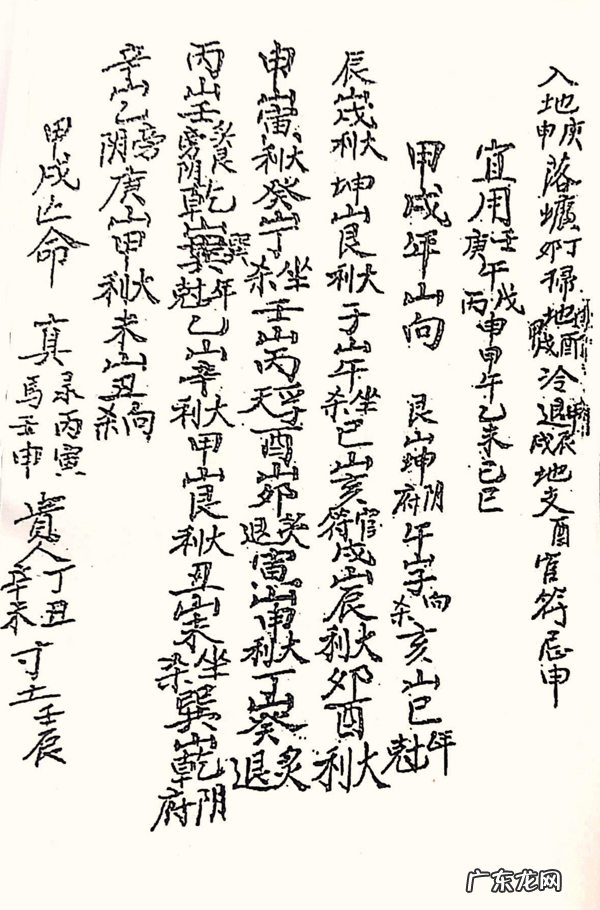 入地庚申落壙丁卯掃地酉冷退戌辰地支酉官符忌申
宜用壬午戊庚丙申甲午乙未己巳
甲戌年山向 艮山坤阴府午山子向杀亥山巳年尅
辰山戌大利坤山艮大利子山午坐杀巳山亥官符戌山辰大利卯酉大利
申山寅大利癸山丁坐杀壬山丙浮天酉山卯炙退寅山申大利丁山癸炙退
丙山壬旁阴乾山巽年尅乙山辛大利甲山艮大利丑山未坐杀巽山乾阴府
辛山乙旁阴庚山甲大利未山丑向杀
甲戌亡命 真彔丙寅馬壬申 貴人丁丑辛未 寸土壬辰
广东龙网